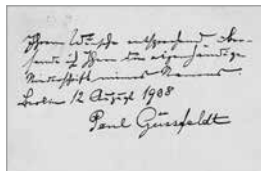 Ihrem Wunsche entsprechend über-
sende ich Ihnen die eigenhändige
Niederschrift meines Namens.
Berlin 12 August 1908
Paul Güssfeldt